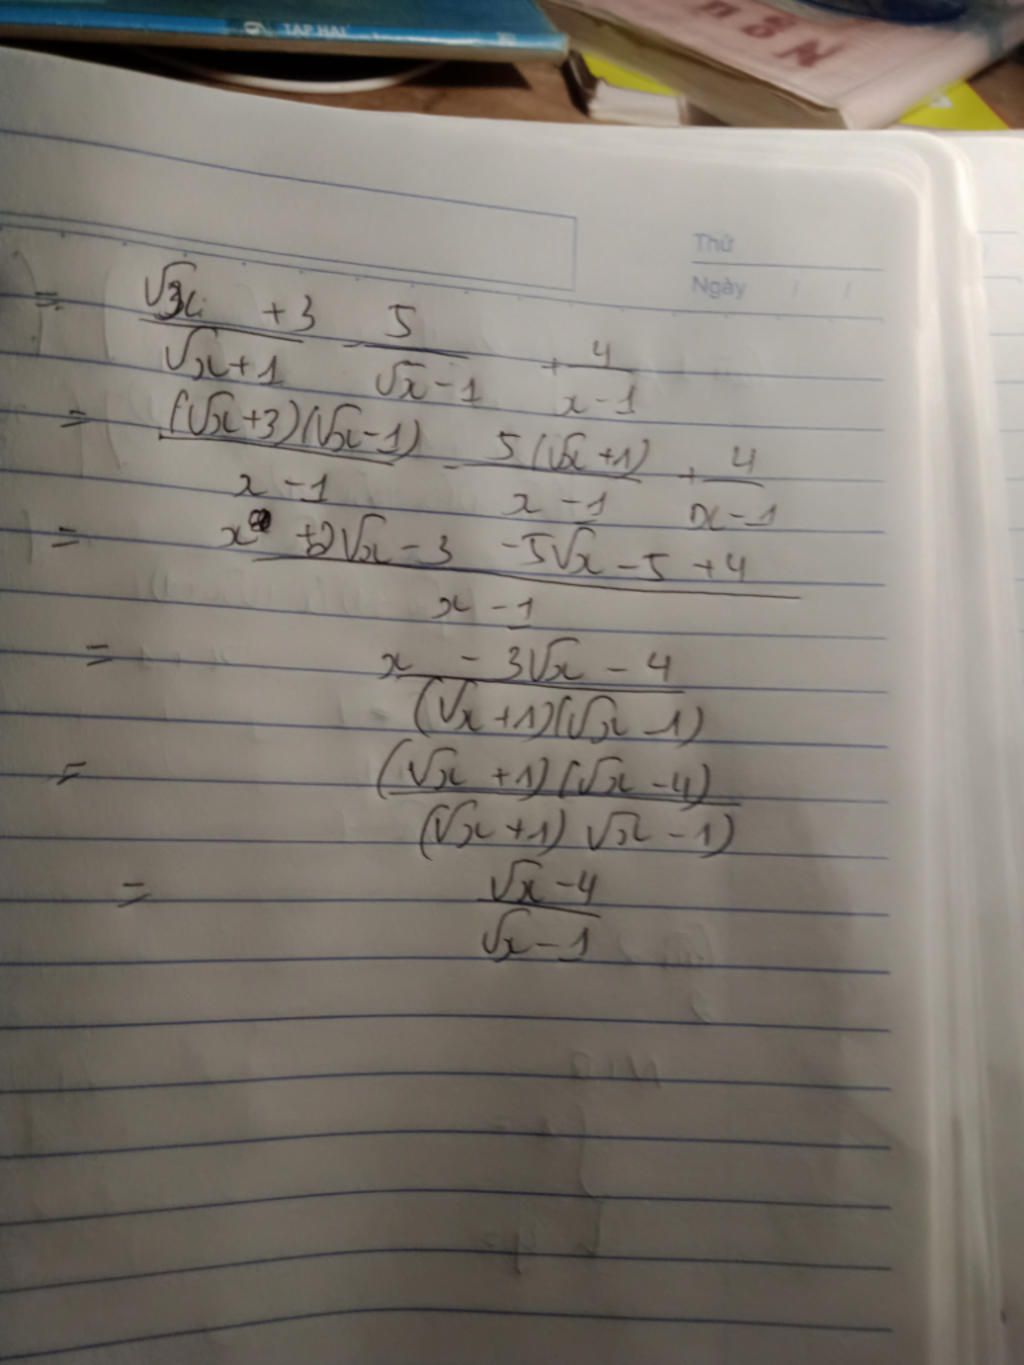 9 TẬP HAI
NGỮ
Thứ
Ngày / /
= (√x + 3)/(√x + 1) - 5/(√x - 1) + 4/(x - 1)
= ((√x + 3)(√x - 1))/(x - 1) - (5(√x + 1))/(x - 1) + 4/(x - 1)
= (x + 2√x - 3 - 5√x - 5 + 4)/(x - 1)
= (x - 3√x - 4)/((√x + 1)(√x - 1))
= ((√x + 1)(√x - 4))/((√x + 1) √x - 1)
= (√x - 4)/(√x - 1)